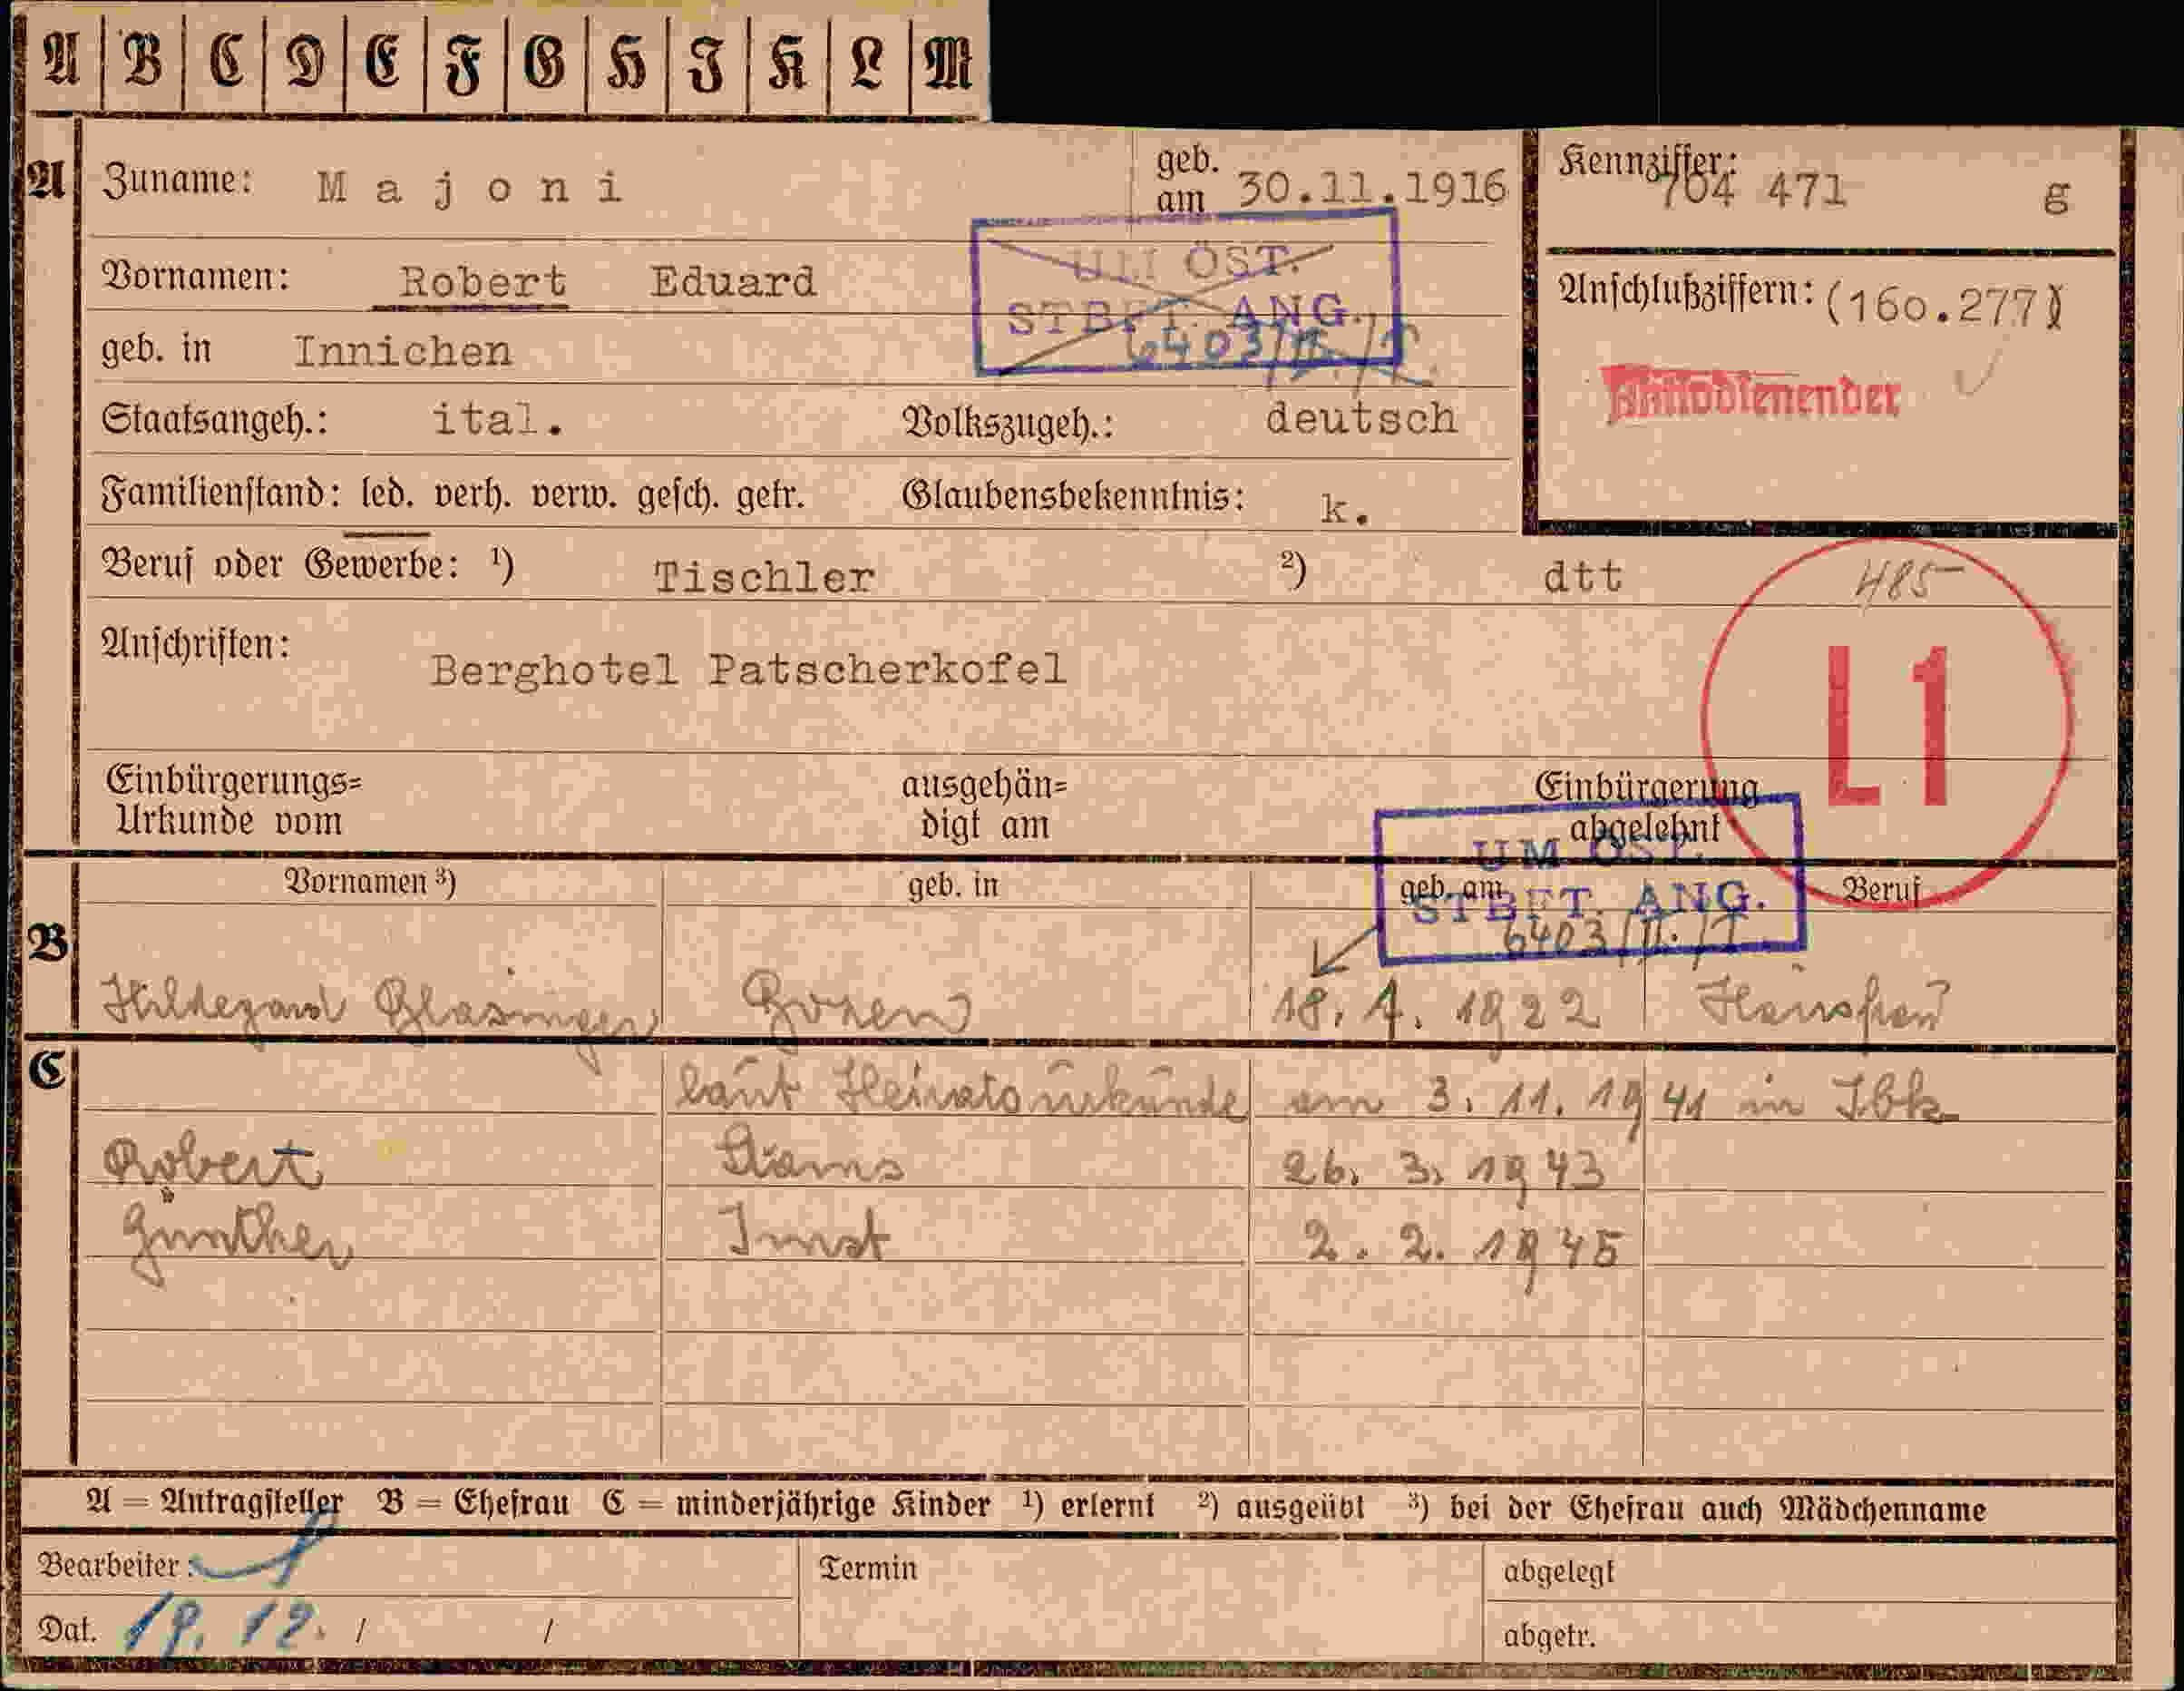 A B C D E F G H I K L M
A Zuname: Majoni geb. am 30.11.1916 Kennziffer: 704 471 g
UM ÖST.
Vornamen: Robert Eduard Anschlußziffern: (160.277)
STBFT. ANG.
6403/II./1
geb. in Innichen
Staatsangeh.: ital. Volkszugeh.: deutsch
Familienstand: led. verh. verw. gesch. getr. Glaubensbekenntnis: k.
Beruf oder Gewerbe: 1) Tischler 2) dtt 485
Anschriften: Berghotel Patscherkofel
L1
Einbürgerungs= Urkunde vom ausgehän= digt am Einbürgerung abgelehnt
UM ÖST.
STBFT. ANG.
6403/II./1
B Vornamen 3) geb. in geb. am Beruf
Hildegard Bozen 18. 4. 1922 Hausfrau
C laut Heiratsurkunde am 3. 11. 1941 in Ibk.
Robert Stams 26. 3. 1943
Günther Imst 2. 2. 1945
A = Antragsteller B = Ehefrau C = minderjährige Kinder 1) erlernt 2) ausgeübt 3) bei der Ehefrau auch Mädchenname
Bearbeiter: Termin abgelegt
Dat. 19. 12. / / abgetr.